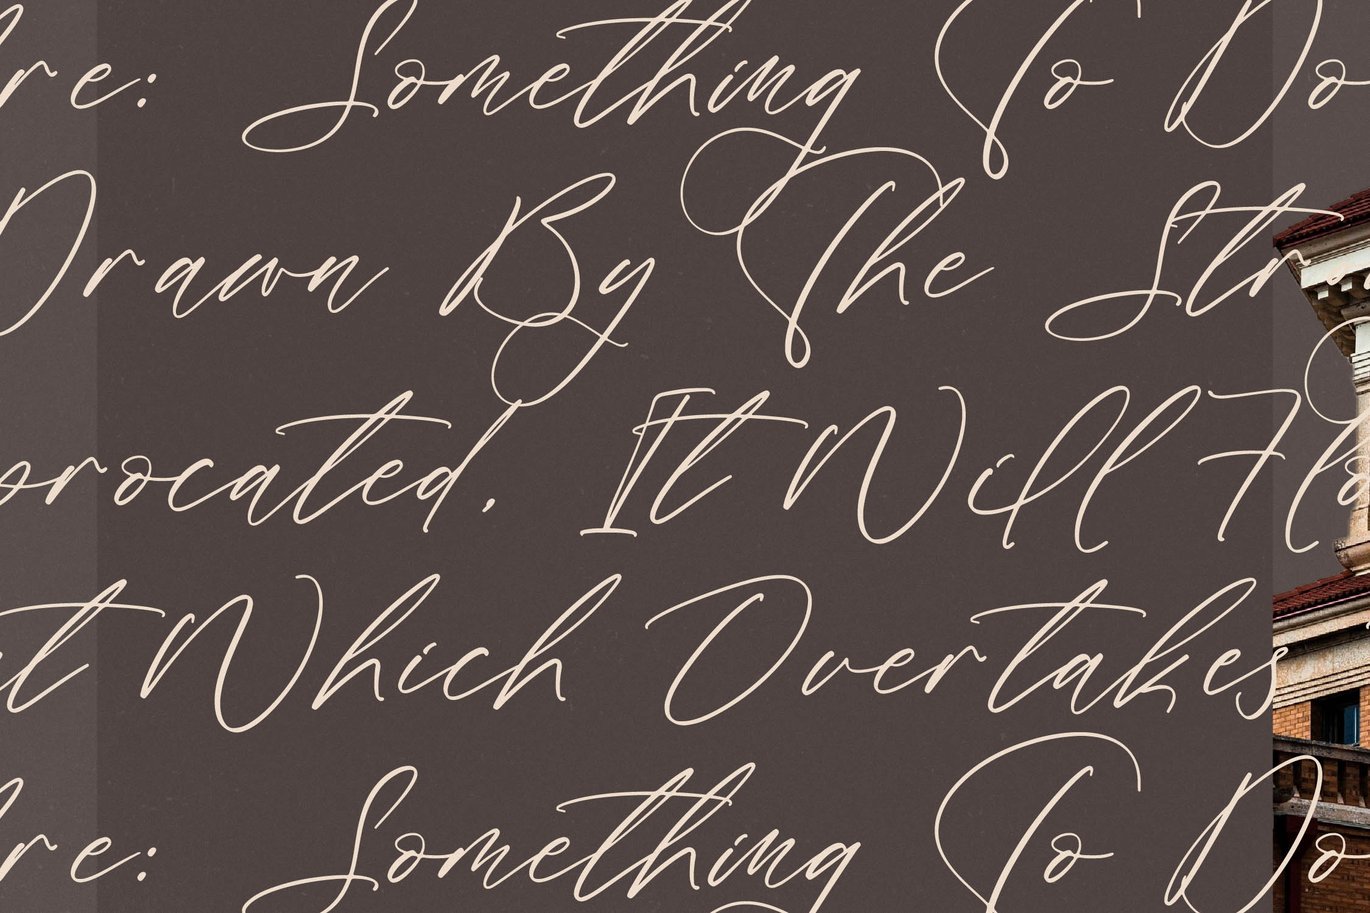 re: Something To Do
Drawn By The Str
orocated. It Will Flo
t Which Overtakes
re: Something To Do